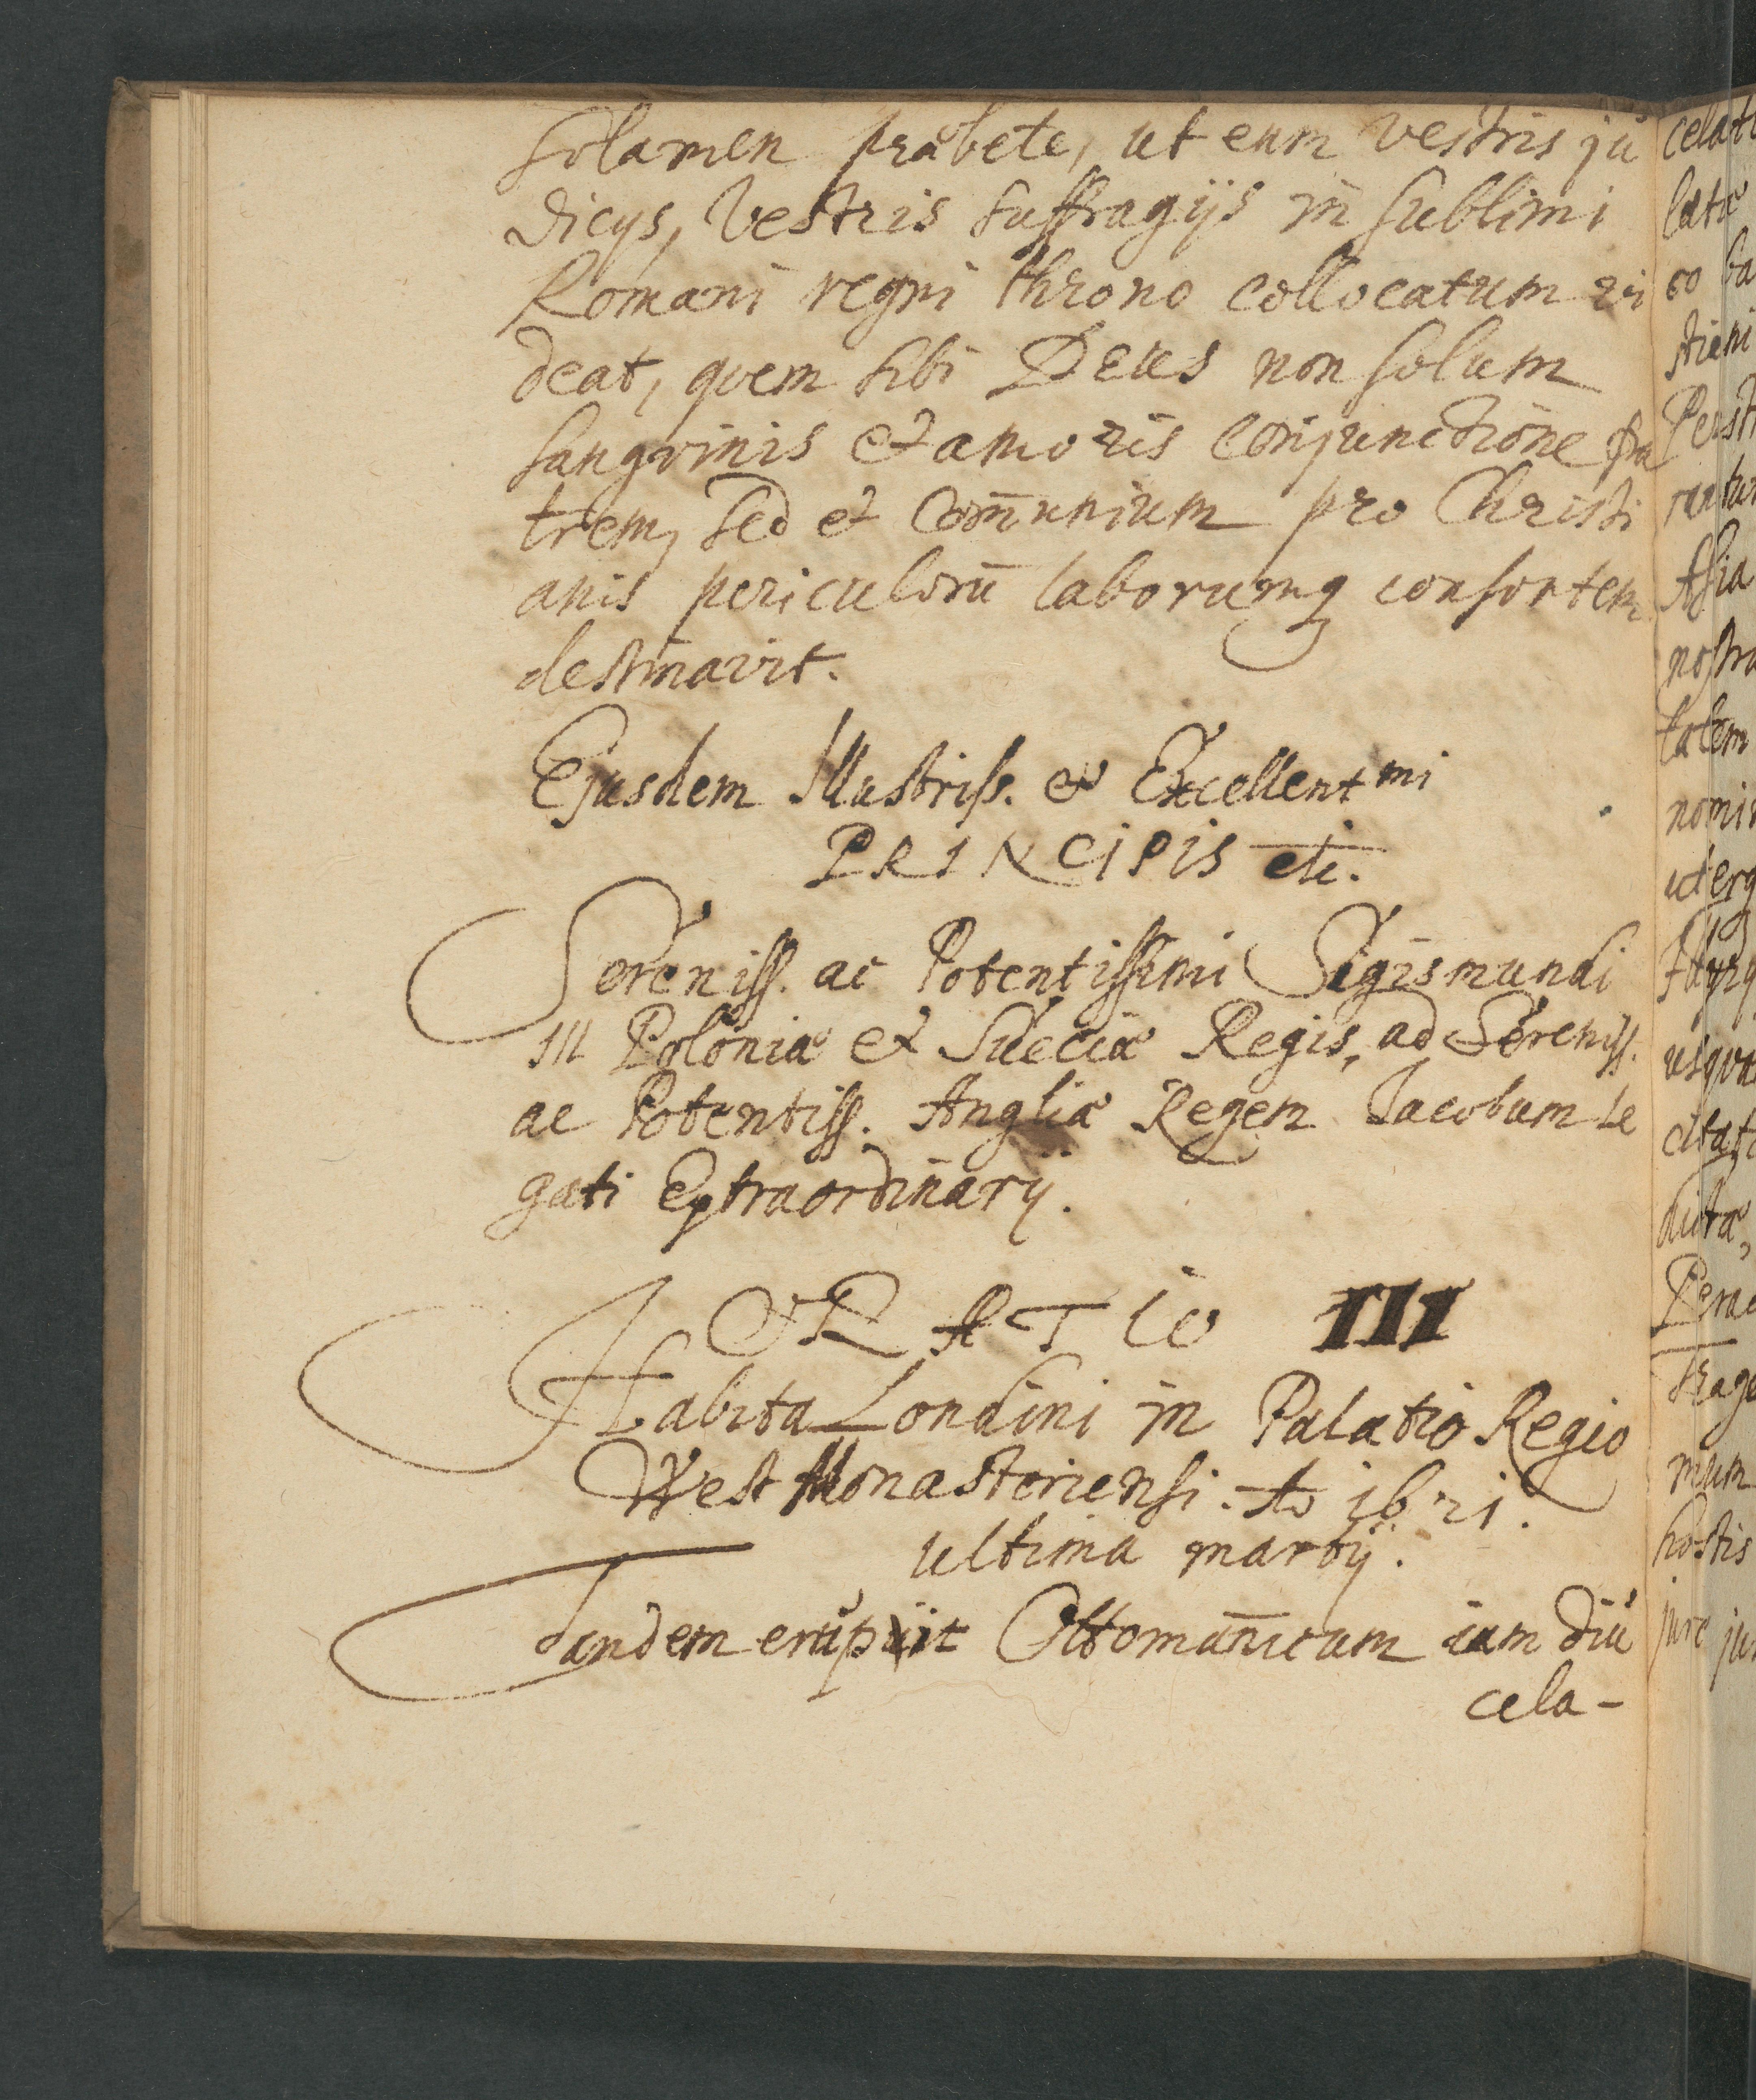 solamen præbete, ut eum vestris ju
dicijs, vestris suffragijs in sublimi
Romani regni throno collocatum vi
deat, qvem sibi Deus non solum
sangvinis et amoris conjunctione fra
trem, sed et com̄unium pro Christi
anis periculorū laborumq consortem
destinavit.
Ejusdem Illustriss. et Excellentmi
PRINCIPIS etc.
Sereniss. ac Potentissimi Sigismundi
III Poloniæ et Sueciæ Regis, ad Sereniss.
ac Potentiss. Angliæ Regem Jacobum Le
gati Extraordinarij.
ORATIO III
Habita Londini in Palatio Regio
WestMonasteriensi. Ao 1621.
ultima martij.
Tandem erupit Ottomañicum iam diu
cela-